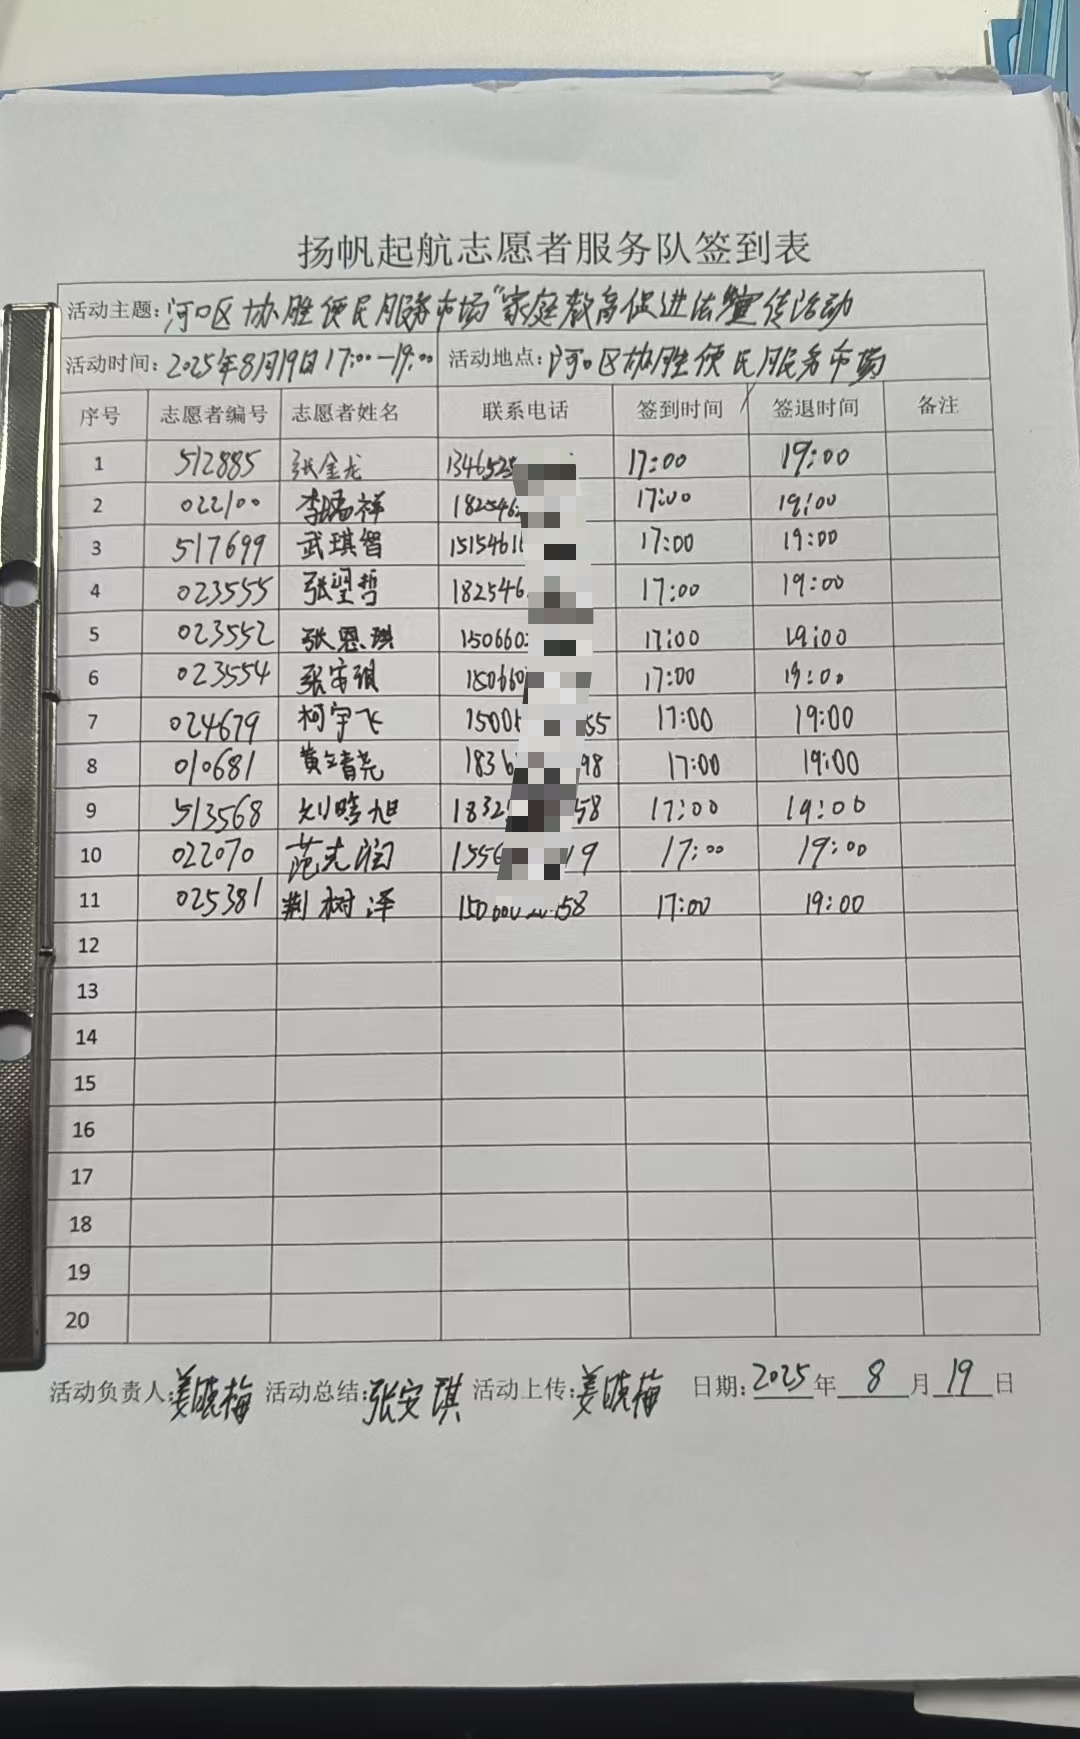 扬帆起航志愿者服务队签到表
活动主题:河口区协胜便民服务市场"家庭教育促进法宣传活动
活动时间:2025年8月19日17:00-19:00 活动地点:河口区协胜便民服务市场
序号 志愿者编号 志愿者姓名 联系电话 签到时间 签退时间 备注
1 512885 张金龙 1346525 17:00 19:00
2 022100 李瑞祥 182546 17:00 19:00
3 517699 武琪智 1515461 17:00 19:00
4 023555 张塱哲 182546 17:00 19:00
5 023552 张恩琪 150660 17:00 19:00
6 023554 张安琪 150660 17:00 19:00
7 024679 柯宇飞 1500 55 17:00 19:00
8 010681 黄靖尧 183 98 17:00 19:00
9 513568 刘晗旭 1832 58 17:00 19:00
10 022070 范克润 1556 19 17:00 19:00
11 025381 荆树泽 150 58 17:00 19:00
12
13
14
15
16
17
18
19
20
活动负责人:姜晓梅 活动总结:张安琪 活动上传:姜晓梅 日期:2025年8月19日